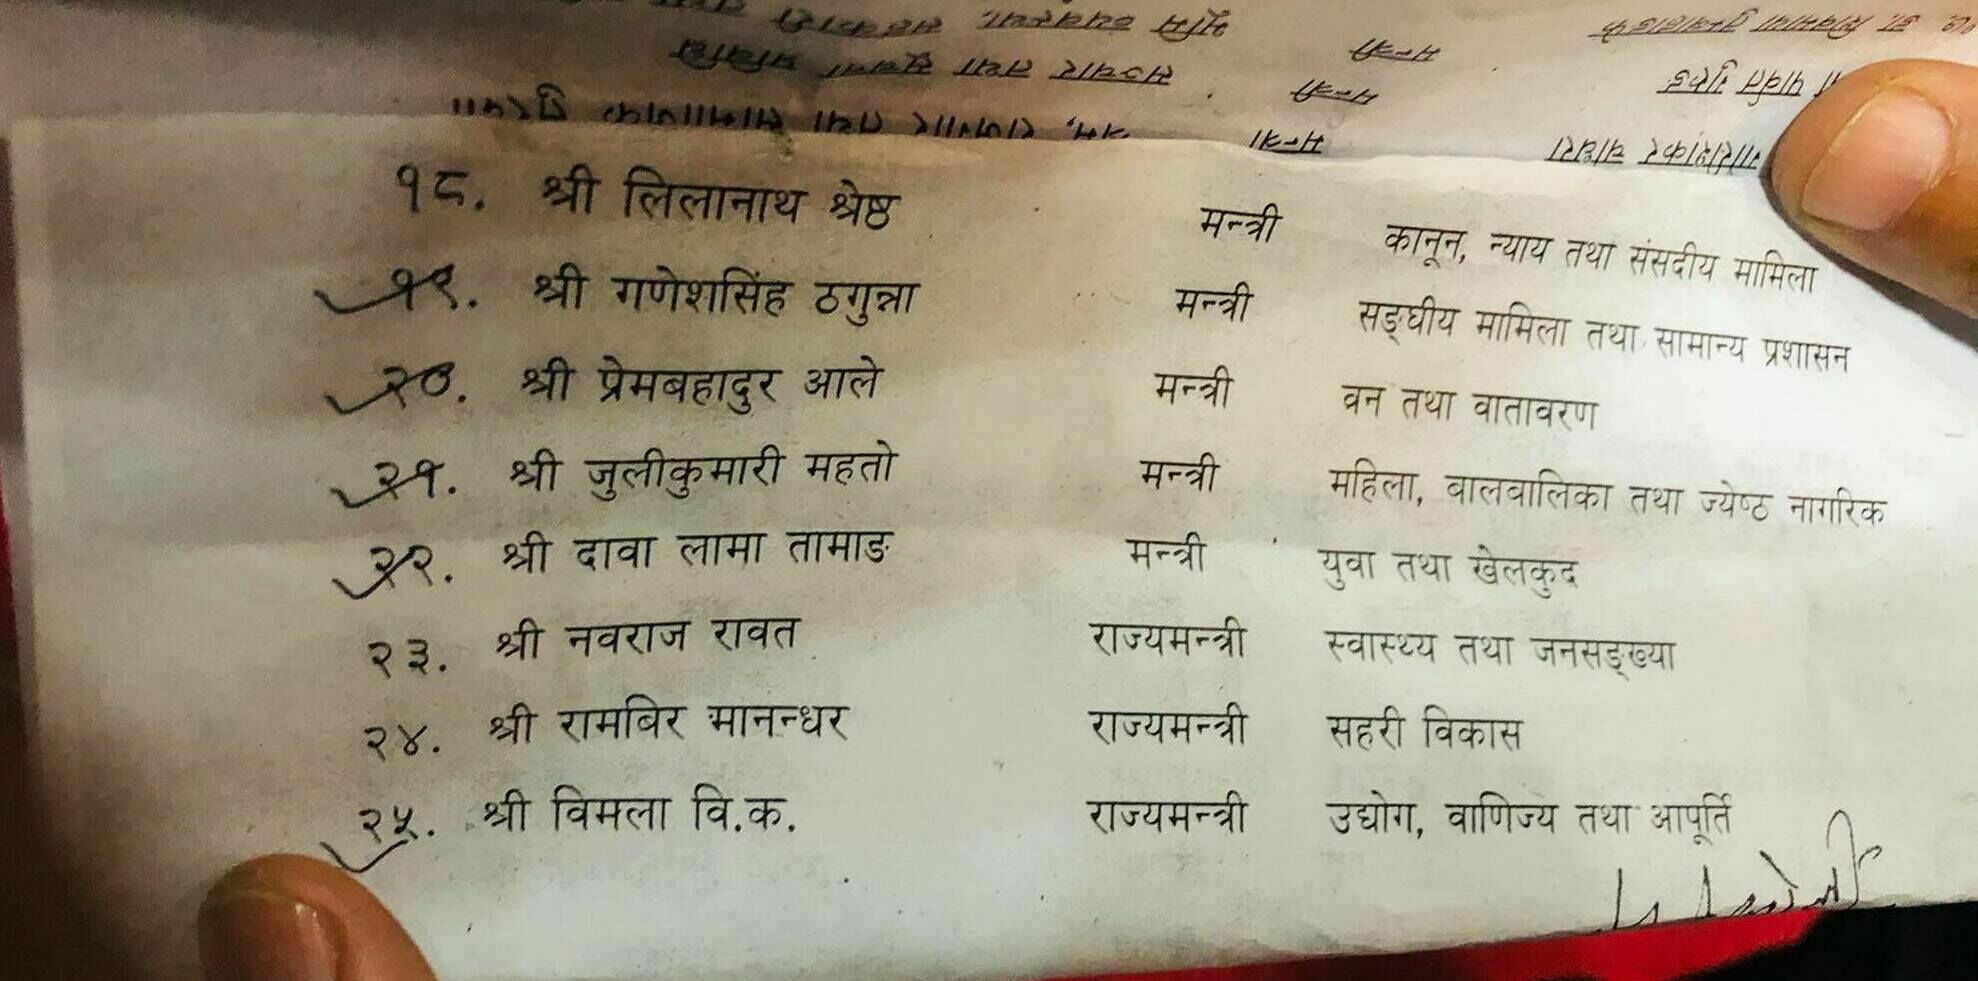 १८. श्री लिलानाथ श्रेष्ठ मन्त्री कानून, न्याय तथा संसदीय मामिला
१९. श्री गणेशसिंह ठगुन्ना मन्त्री सङ्घीय मामिला तथा सामान्य प्रशासन
२०. श्री प्रेमबहादुर आले मन्त्री वन तथा वातावरण
२१. श्री जुलीकुमारी महतो मन्त्री महिला, वालवालिका तथा ज्येष्ठ नागरिक
२२. श्री दावा लामा तामाङ मन्त्री युवा तथा खेलकुद
२३. श्री नवराज रावत राज्यमन्त्री स्वास्थ्य तथा जनसङ्ख्या
२४. श्री रामबिर मानन्धर राज्यमन्त्री सहरी विकास
२५. श्री विमला वि.क. राज्यमन्त्री उद्योग, वाणिज्य तथा आपूर्ति
मन्त्री
मन्त्री सञ्चार तथा सूचना प्रविधि
मन्त्री भूमि व्यवस्था,